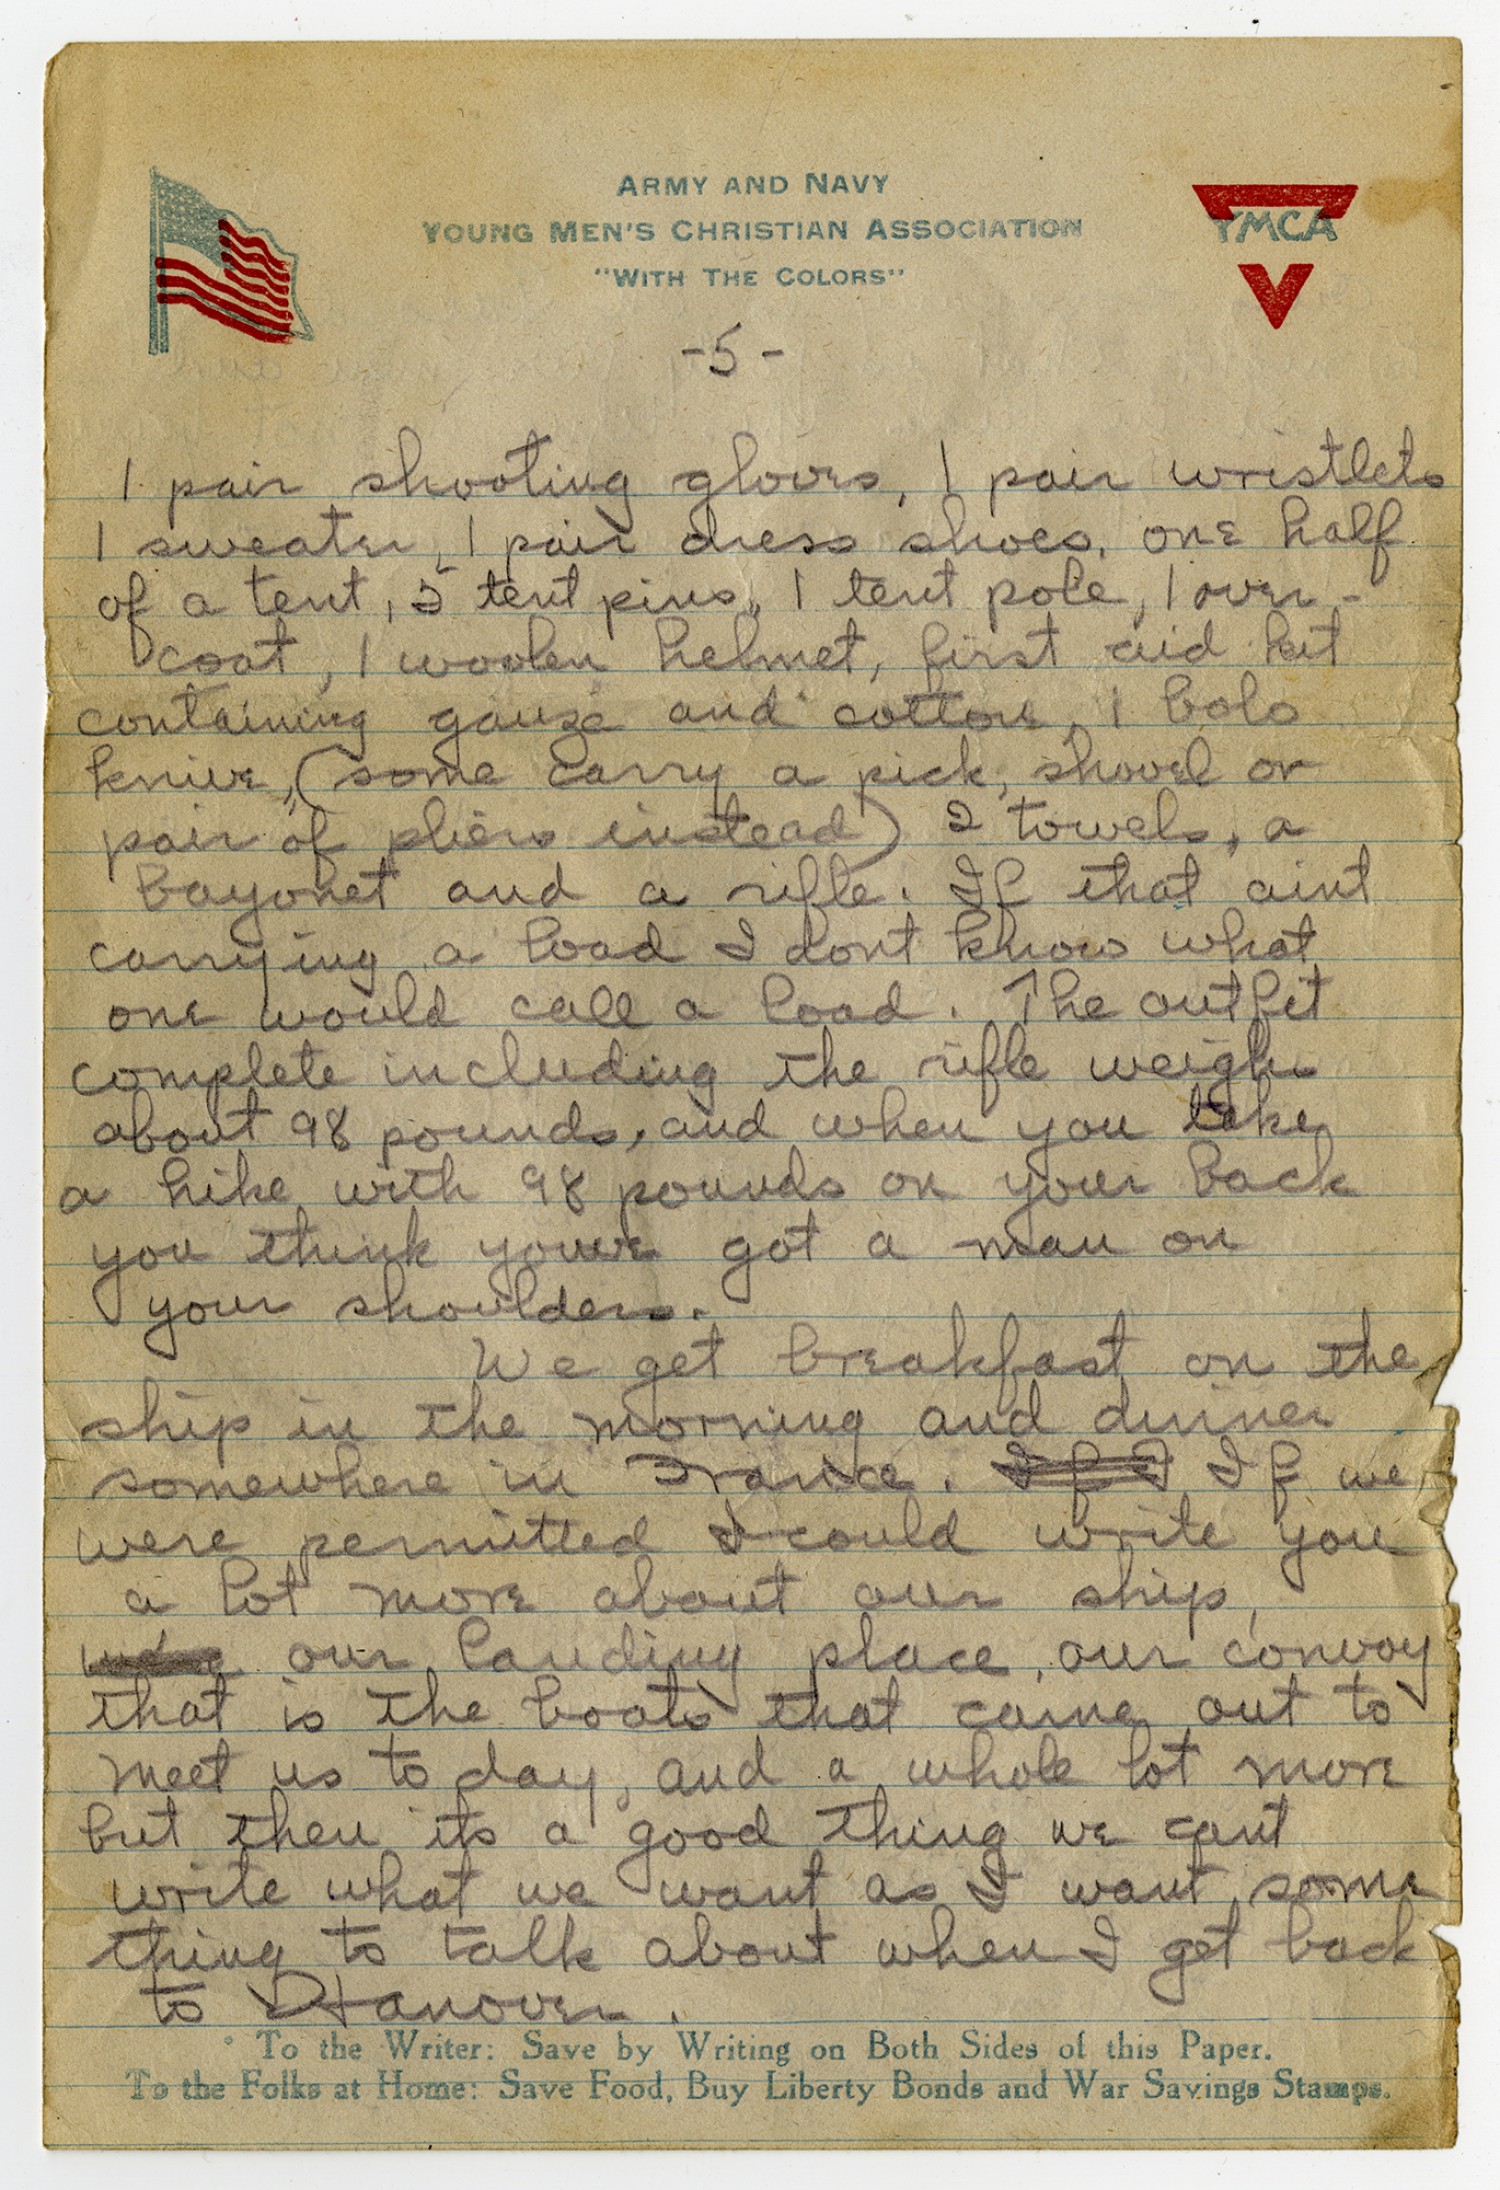 ARMY AND NAVY
YOUNG MEN'S CHRISTIAN ASSOCIATION
"WITH THE COLORS"
YMCA
-5-
1 pair shooting gloves, 1 pair wristlets
1 sweater, 1 pair dress shoes, one half
of a tent, 5 tent pins, 1 tent pole, 1 over-
coat, 1 woolen helmet, first aid kit
containing gauze and cotton, 1 bolo
knive, (some carry a pick, shovel or
pair of pliers instead) 2 towels, a
bayonet and a rifle. If that aint
carrying a load I dont know what
one would call a load. The outfit
complete including the rifle weighs
about 98 pounds, and when you take
a hike with 98 pounds on your back
you think youve got a man on
your shoulders.
We get breakfast on the
ship in the morning and dinner
somewhere in France. If I If we
were permitted I could write you
a lot more about our ship,
our landing place, our convoy
that is the boats that came out to
meet us to day, and a whole lot more
but then its a good thing we cant
write what we want as I want some
thing to talk about when I get back
to Hanover.
To the Writer: Save by Writing on Both Sides of this Paper.
To the Folks at Home: Save Food, Buy Liberty Bonds and War Savings Stamps.